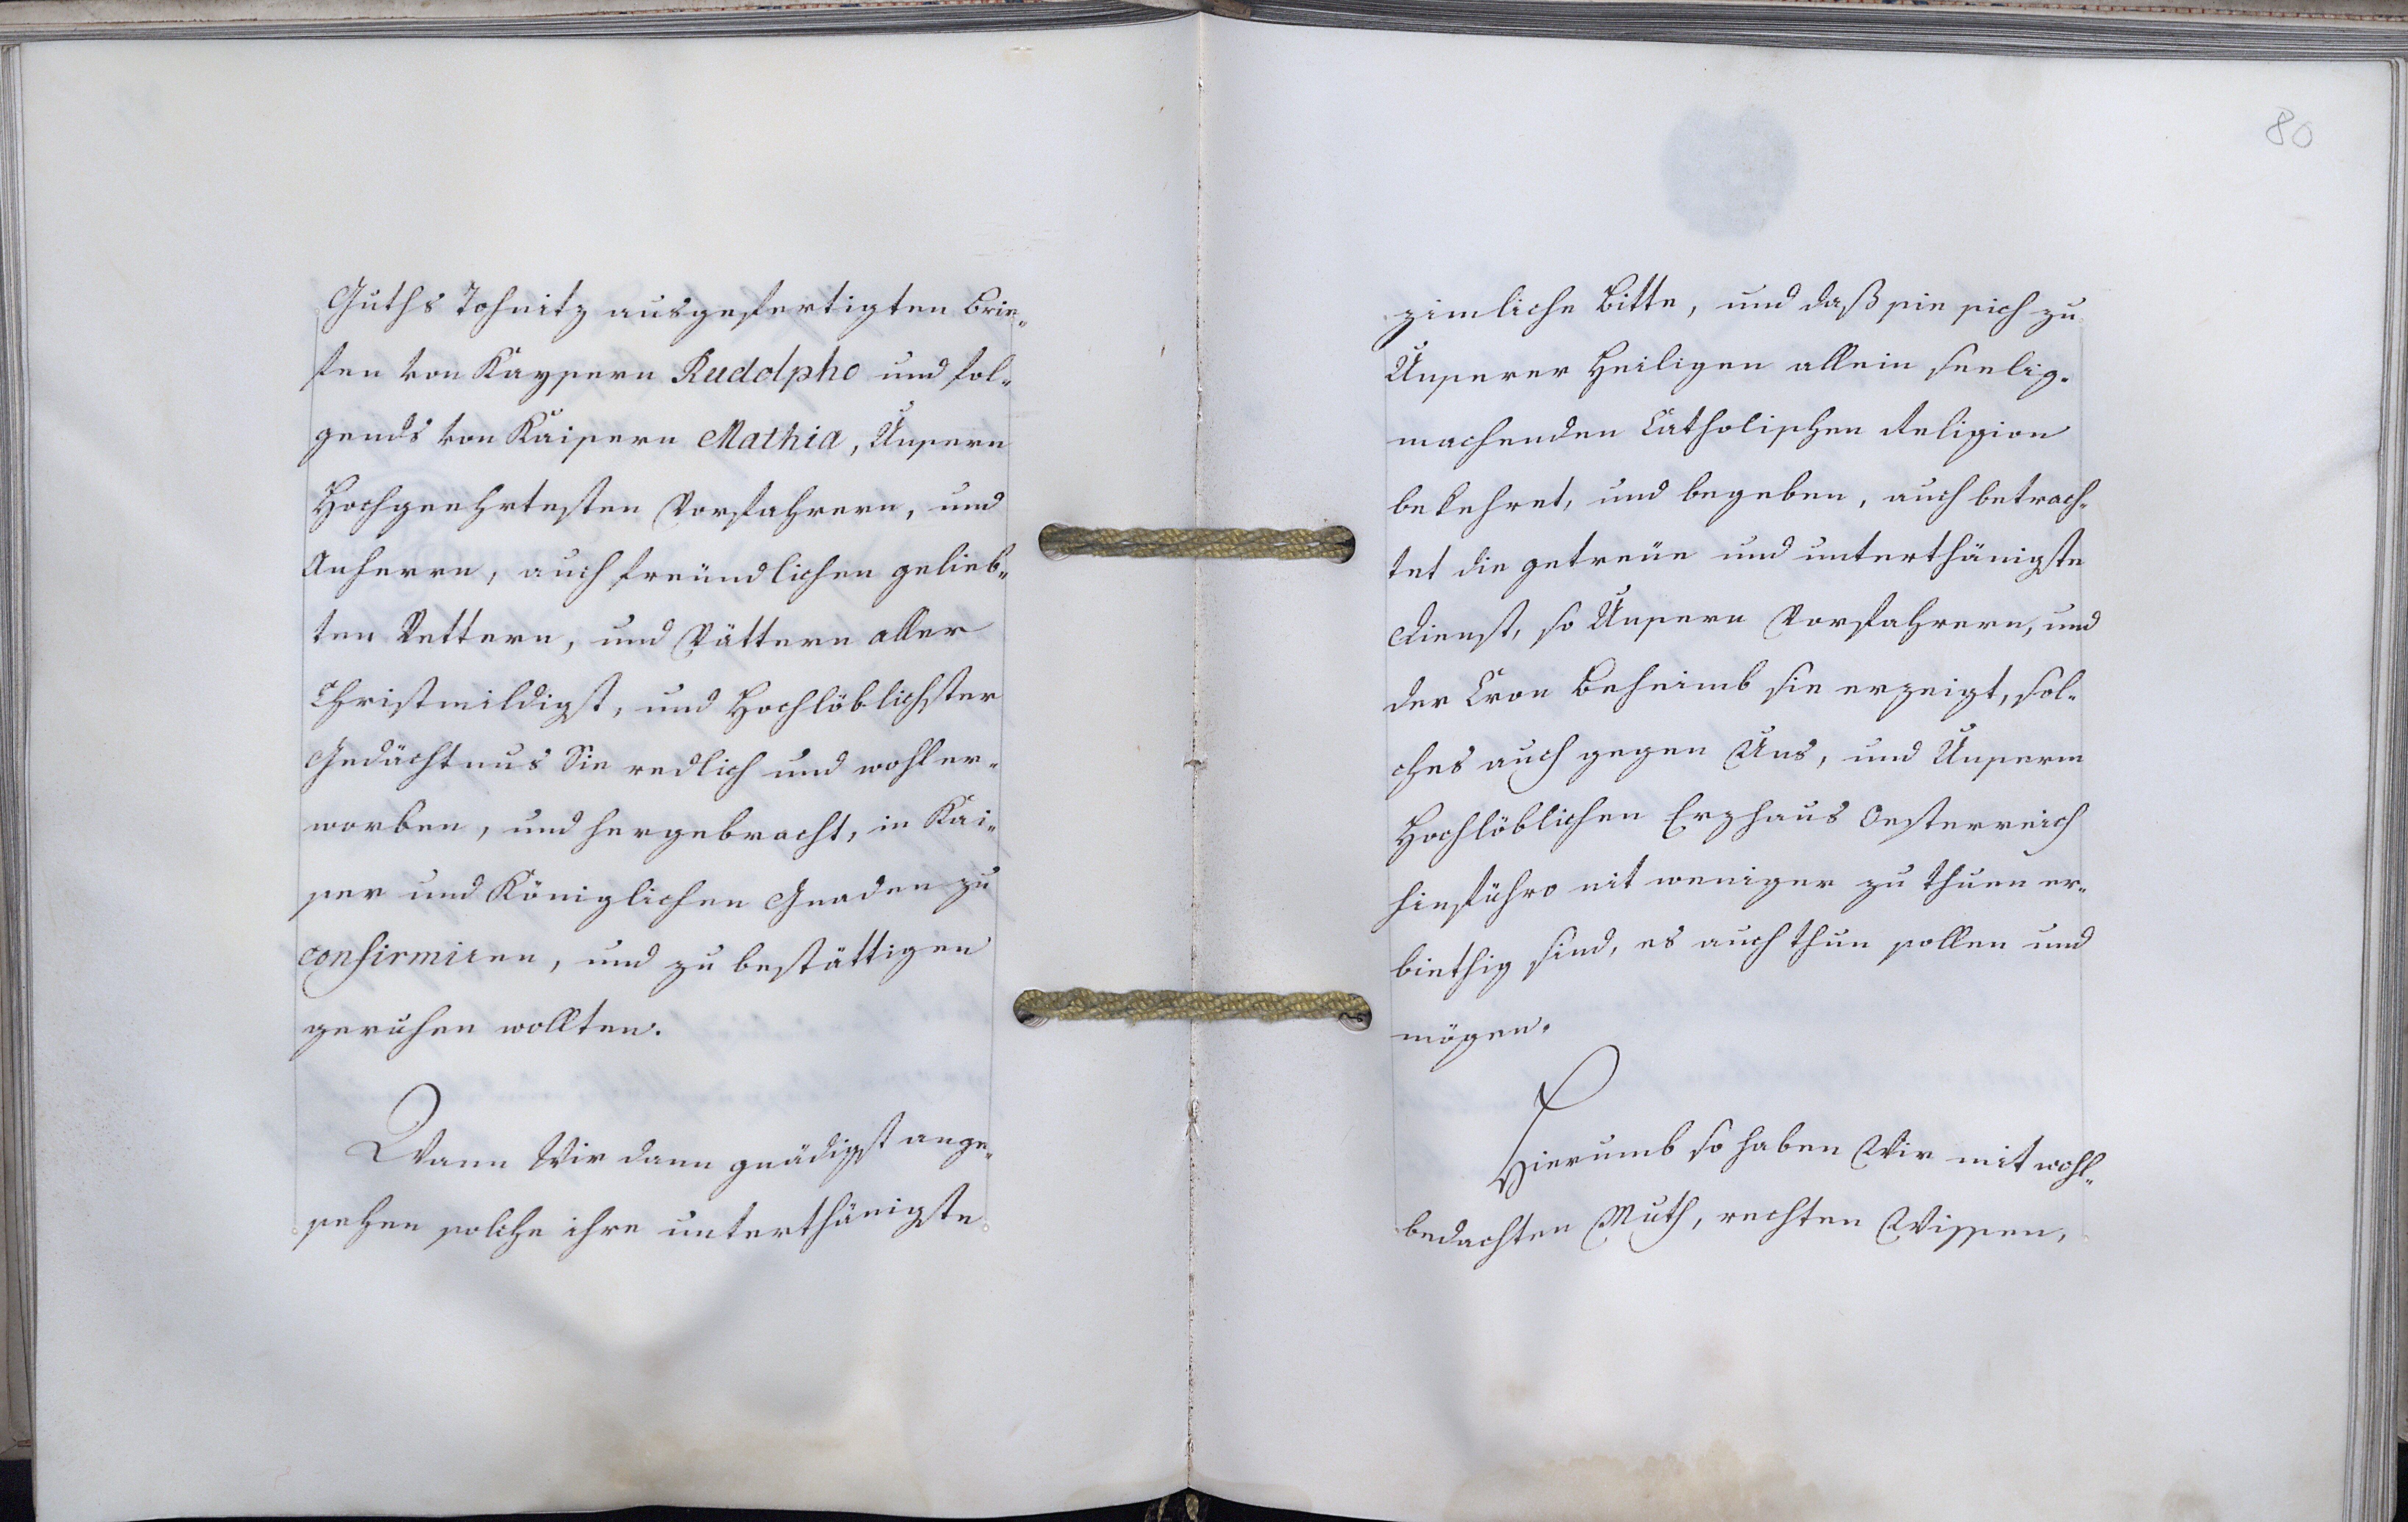 Guths Tohnitz ausgefertigten Brie„
fen von Kaysern Rudolpho und fol„
gends von Kaisern Mathia, Unsern
Hochgeehrtesten Vorfahrern, und
Anherrn, auch freündlichen gelieb„
ten Vettern, und Vättern aller
Christmildigst, und Hochlöblichster
Gedächtnus Sie redlich und wohl er„
worben, und hergebracht, in Kai„
ser und Königlichen Gnaden zu
confirmiren, und zu bestättigen
geruhen wollten.
Wann Wir dann gnädigst ange„
sehen solche ihre unterthänigste
80
zimliche Bitte, und daß sie sich zu
Unserer Heiligen allein seelig„
machenden Catholischen Religion
bekehret, und begeben, auch betrach„
tet die getreüe und unterthänigste
Dienst, so Unsern Vorfahrern, und
der Cron Beheimb sie erzeigt, sol„
ches auch gegen Uns, und Unserm
Hochlöblichen Erzhaus Oesterreich
hinführo nit weniger zu thuen er„
biethig sind, es auch thun sollen und
mögen.
Hierumb so haben Wir mit wohl„
bedachten Muth, rechten Wissen,